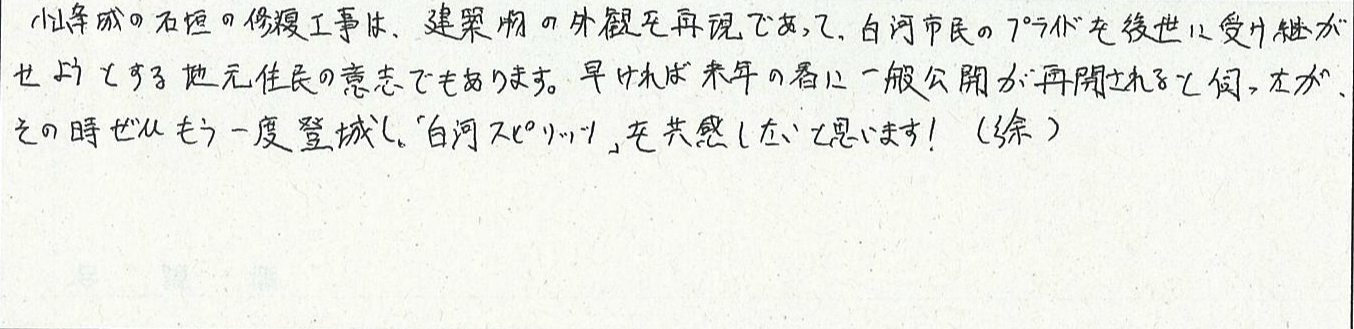 小峰城の石垣の修復工事は、建築物の外観を再現であって、白河市民のプライドを後世に受け継が
せようとする地元住民の意志でもあります。早ければ来年の春に一般公開が再開されると伺ったが、
その時ぜひもう一度登城し、「白河スピリッツ」を共感したいと思います!(徐)